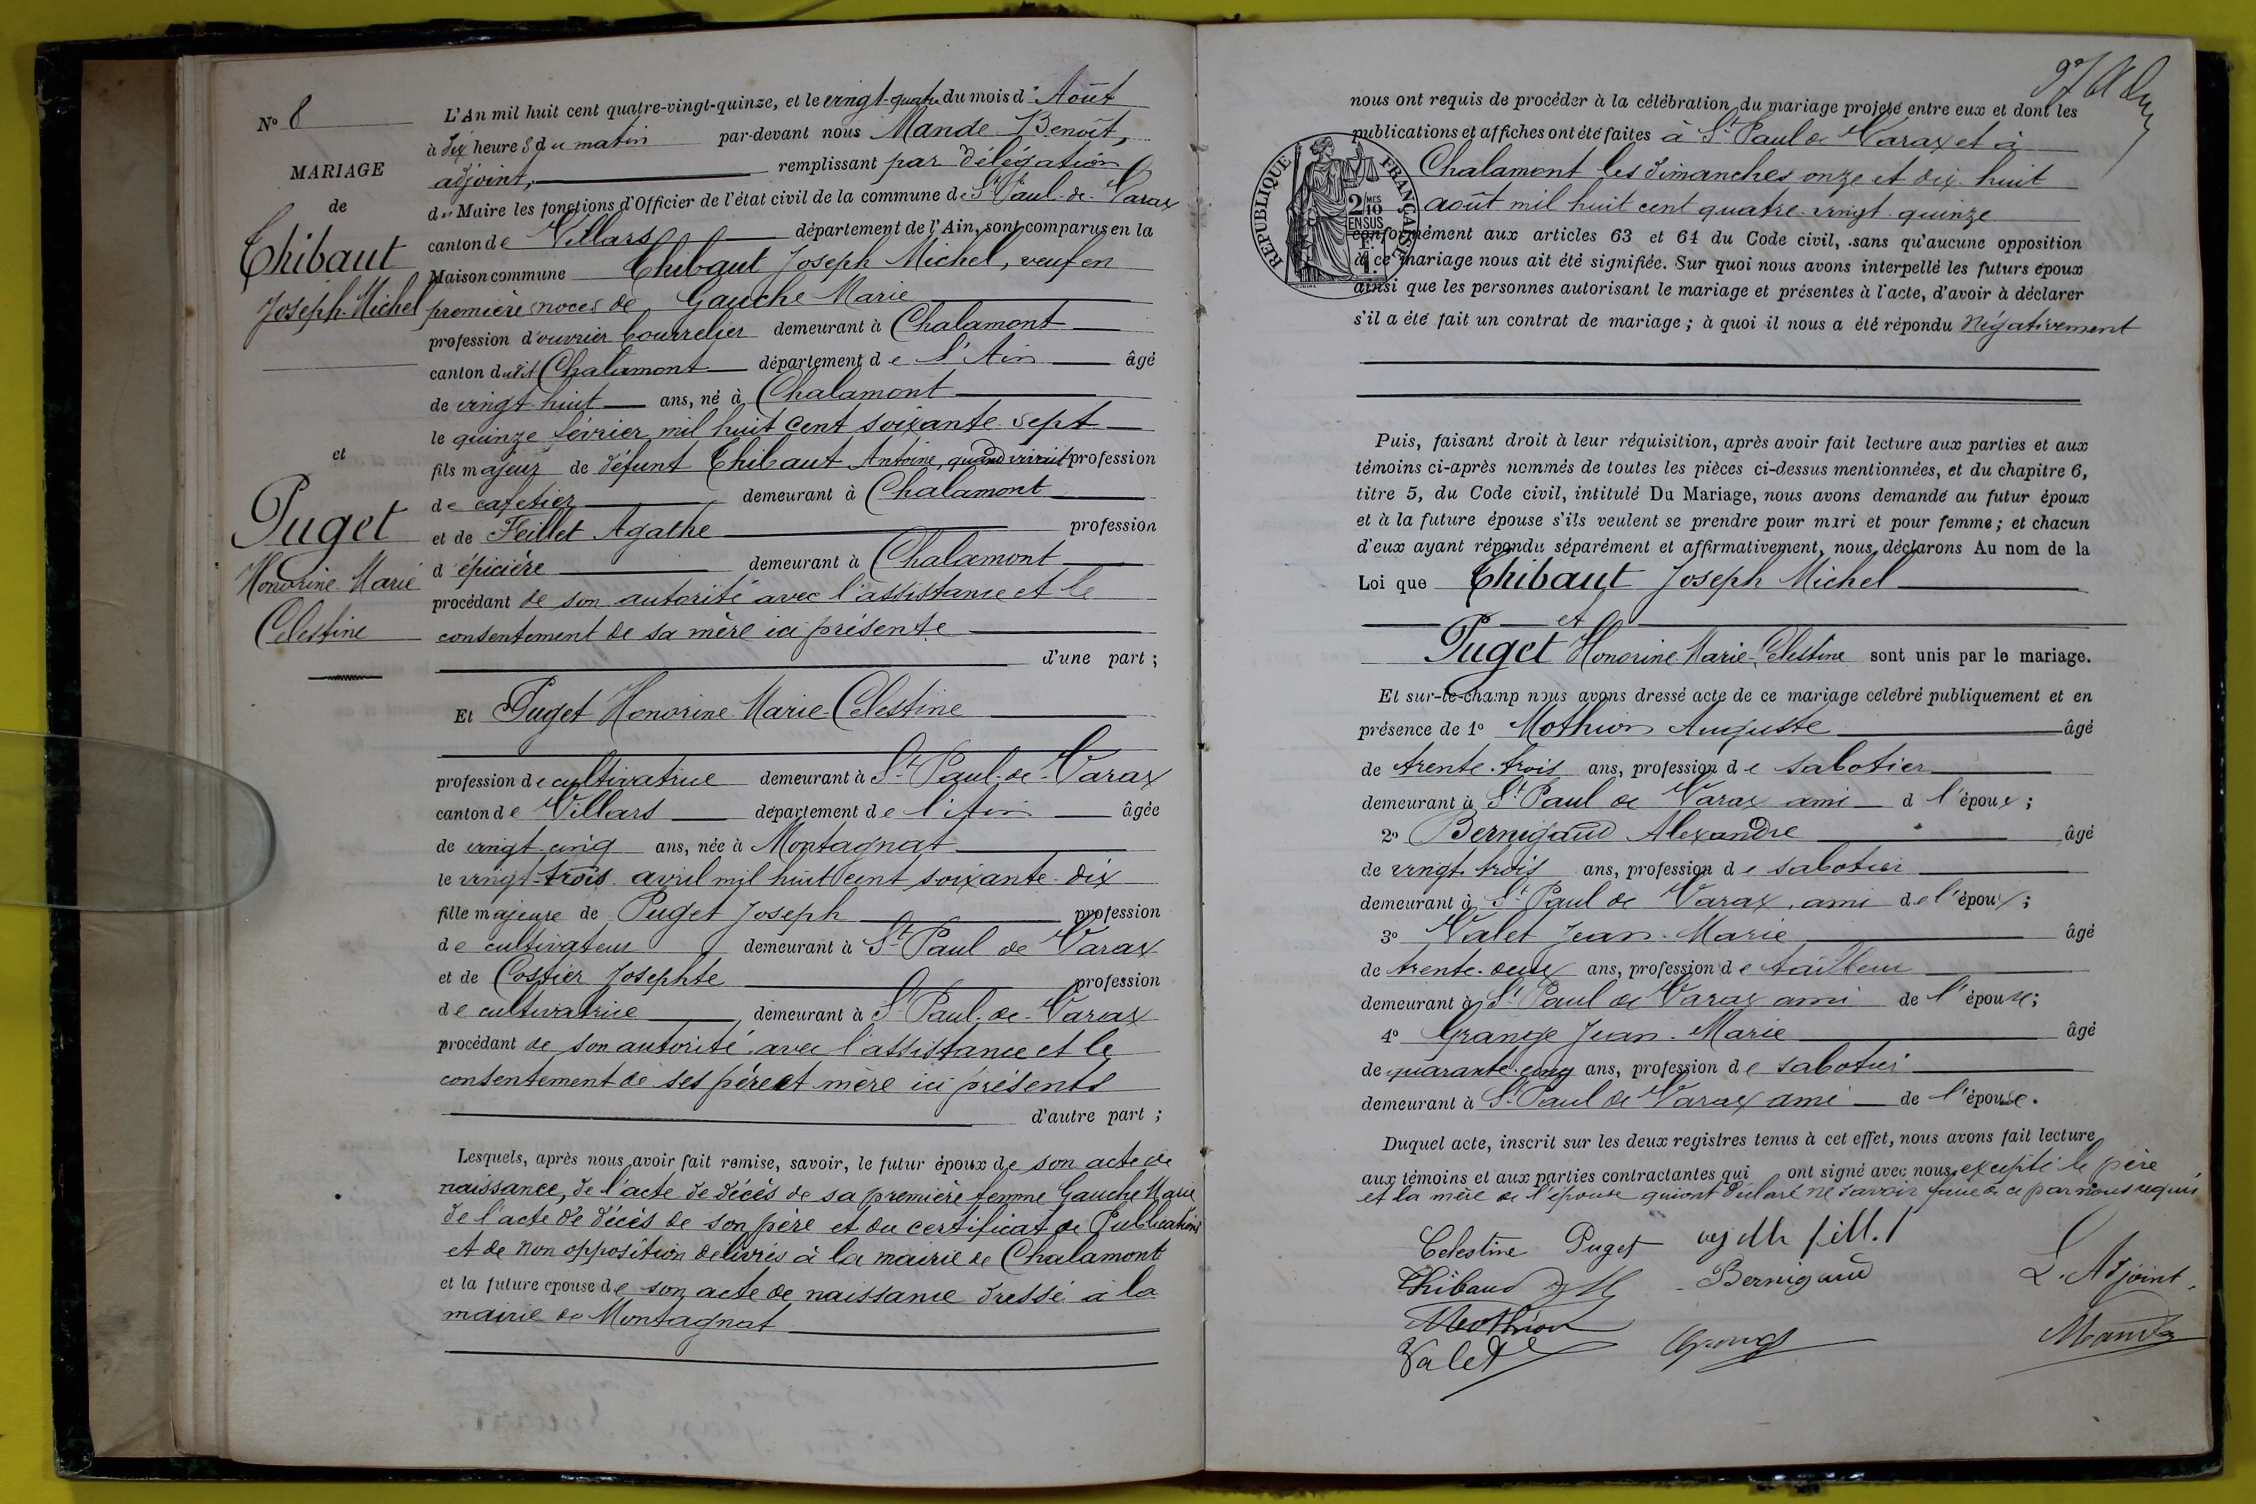 N° 8
MARIAGE
de
Thibaut
Joseph-Michel
et
Puget
Honorine Marie
Celestine
L'An mil huit cent quatre-vingt-quinze, et le vingt-quatre du mois d'Août
à dix heures du matin par-devant nous Mande Benoît,
adjoint, remplissant par délégation
du Maire les fonctions d'Officier de l'état civil de la commune de St Paul-de-Varax
canton de Villars département de l'Ain, sont comparus en la
Maison commune Thibaut Joseph Michel, veuf en
première noces de Gauche Marie
profession d'ouvrier bourrelier demeurant à Chalamont
canton dudit Chalamont département de l'Ain âgé
de vingt-huit ans, né à Chalamont
le quinze février mil huit cent soixante-sept
fils majeur de défunt Thibaut Antoine, quand vivait profession
de cafetier demeurant à Chalamont
et de Feillet Agathe profession
d'épicière demeurant à Chalamont
procédant de son autorité avec l'assistance et le
consentement de sa mère ici présente
d'une part ;
Et Puget Honorine Marie-Celestine
profession de cultivatrice demeurant à St Paul-de-Varax
canton de Villars département de l'Ain âgée
de vingt-cinq ans, née à Montagnat
le vingt-trois avril mil huit cent soixante-dix
fille majeure de Puget Joseph profession
de cultivateur demeurant à St Paul de Varax
et de Cossier Josephte profession
de cultivatrice demeurant à St Paul-de-Varax
procédant de son autorité avec l'assistance et le
consentement de ses père et mère ici présents
d'autre part ;
Lesquels, après nous avoir fait remise, savoir, le futur époux de son acte de
naissance, de l'acte de décès de sa première femme Gauche Marie
de l'acte de décès de son père et du certificat de Publications
et de non opposition delivrés à la mairie de Chalamont
et la future epouse de son acte de naissance dressé à la
mairie de Montagnat
nous ont requis de procéder à la célébration du mariage projeté entre eux et dont les
publications et affiches ont été faites à St Paul de Varax et à
Chalamont les dimanches onze et dix-huit
août mil huit cent quatre-vingt-quinze
RÉPUBLIQUE FRANÇAISE
2 MES
10
EN SUS
conformément aux articles 63 et 64 du Code civil, sans qu'aucune opposition
à ce mariage nous ait été signifiée. Sur quoi nous avons interpellé les futurs époux
ainsi que les personnes autorisant le mariage et présentes à l'acte, d'avoir à déclarer
s'il a été fait un contrat de mariage ; à quoi il nous a été répondu Négativement
Puis, faisant droit à leur réquisition, après avoir fait lecture aux parties et aux
témoins ci-après nommés de toutes les pièces ci-dessus mentionnées, et du chapitre 6,
titre 5, du Code civil, intitulé Du Mariage, nous avons demandé au futur époux
et à la future épouse s'ils veulent se prendre pour mari et pour femme ; et chacun
d'eux ayant répondu séparément et affirmativement, nous déclarons Au nom de la
Loi que Thibaut Joseph Michel
et
Puget Honorine Marie-Celestine sont unis par le mariage.
Et sur-le-champ nous avons dressé acte de ce mariage celebré publiquement et en
présence de 1° Mothion Auguste âgé
de trente-trois ans, profession de sabotier
demeurant à St Paul de Varax ami d l'époux ;
2° Bernigaud Alexandre âgé
de vingt-trois ans, profession de sabotier
demeurant à St Paul de Varax, ami de l'époux ;
3° Valet Jean-Marie âgé
de trente-deux ans, profession de tailleur
demeurant à St Paul de Varax ami de l'épouse ;
4° Grange Jean-Marie âgé
de quarante-cinq ans, profession de sabotier
demeurant à St Paul de Varax ami de l'épouse.
Duquel acte, inscrit sur les deux registres tenus à cet effet, nous avons fait lecture
aux témoins et aux parties contractantes qui ont signé avec nous, excepté le père
et la mère de l'épouse qui ont déclaré ne savoir faire de ce par nous requis
Celestine Puget
Thibaud
Bernigaud
L'Adjoint,
Mothion
Valet
Grange
Mande